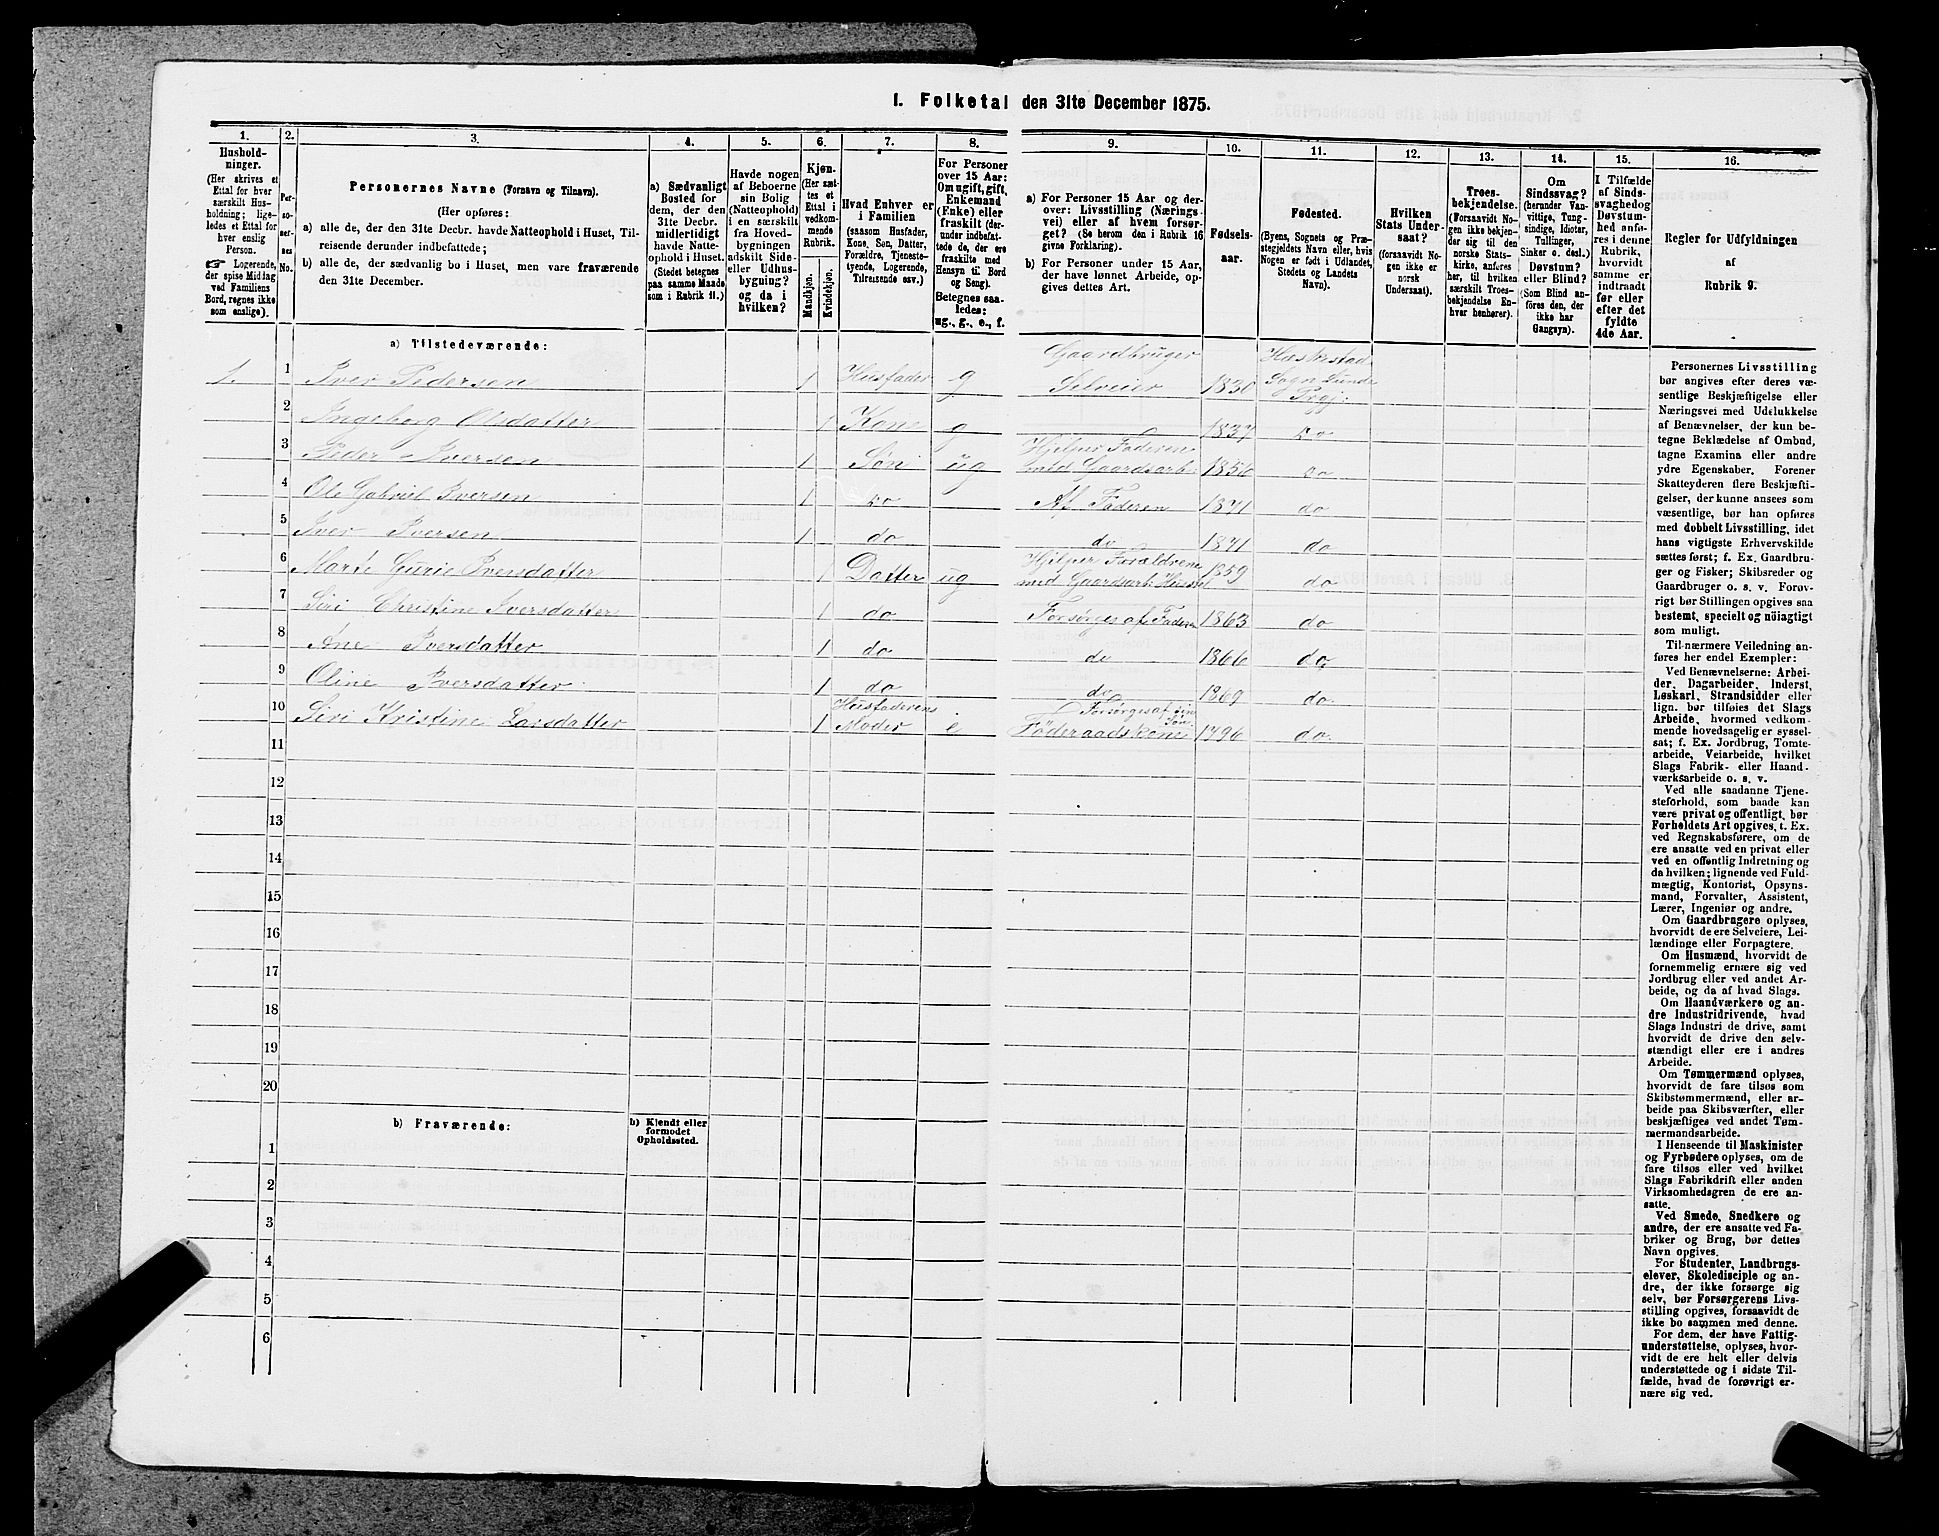 1. Folketal den 31te December 1875.
1. 2. 3. 4. 5. 6. 7. 8. 9. 10. 11. 12. 13. 14. 15. 16.
Hushold-
ninger.
(Her skrives et
Ettal for hver
særskilt Hus-
holdning; lige-
ledes et Ettal for
hver enslig
Person.
☞ Logerende,
der spise Middag
ved Familiens
Bord, regnes ikke
som enslige).
Per-
so-
ner-
nes
No.
Personernes Navne (Fornavn og Tilnavn).
(Her opføres:
a) alle de, der den 31te Decbr. havde Natteophold i Huset, Til-
reisende derunder indbefattede;
b) alle de, der sædvanlig bo i Huset, men vare fraværende
den 31te December.
a) Sædvanligt
Bosted for
dem, der den
31te Decbr.
midlertidigt
havde Natte-
ophold i Huset.
(Stedet betegnes
paa samme Maade
som i Rubrik 11.)
Havde nogen
af Beboerne
sin Bolig
(Natteophold)
i en særskilt
fra Hoved-
bygningen
adskilt Side-
eller Udhus-
bygning?
og da i
hvilken?
Kjøn.
(Her sæt-
tes et
Ettal i
vedkom-
mende
Rubrik.
Mandkjøn.
Kvindekjøn.
Hvad Enhver er
i Familien
(saasom Husfader,
Kone, Søn, Datter,
Forældre, Tjeneste-
tyende, Logerende,
Tilreisende osv.)
For Personer
over 15 Aar:
Om ugift, gift,
Enkemand
(Enke) eller
fraskilt (der-
under indbefat-
tede de, der ere
fraskilte med
Hensyn til Bord
og Seng).
Betegnes saa-
ledes:
ug., g., e., f.
a) For Personer 15 Aar og der-
over: Livsstilling (Nærings-
vei) eller af hvem forsør-
get? (Se herom den i Rubrik 16
givne Forklaring).
b) For Personer under 15 Aar,
der have lønnet Arbeide, op-
gives dettes Art.
Fødsels-
aar.
Fødested.
(Byens, Sognets og Præ-
stegjeldets Navn eller, hvis
Nogen er født i Udlandet,
Stedets og Landets
Navn).
Hvilken
Stats Under-
saat?
(forsaavidt No-
gen ikke er
norsk
Undersaat).
Troes-
bekjendelse.
(Forsaavidt No-
gen ikke bekjen-
der sig til den
norske Stats-
kirke, anføres
her, til hvilken
særskilt Troes-
bekjendelse En-
hver henhører).
Om
Sindssvag?
(herunder Van-
vittige, Tung-
sindige, Idioter,
Tullinger,
Sinker o. desl.)
Døvstum?
eller Blind?
(Som Blind an-
føres den, der
ikke har
Gangsyn).
I Tilfælde
af Sinds-
svaghed og
Døvstum-
hed anfø-
res i denne
Rubrik,
hvorvidt
samme er
indtraadt
før eller
efter det
fyldte
4de Aar.
Regler for Udfyldningen
af
Rubrik 9.
a) Tilstedeværende:
1. 1 Iver Pedersen 1 Husfader g Gaardbruger Selveier 1830 Hæskestad Sogn Lunde Prgj.
2 Ingeborg Olsdatter 1 Kone g 1837 do
3 Peder Iversen 1 Søn ug Hjelper Faderen med Gaardsarb. 1856 do
4 Ole Gabriel Iversen 1 do Af Faderen 1871 do
5 Iver Iversen 1 do do 1871 do
6 Marte Gurie Iversdatter 1 Datter ug Hjelper Forældrene med Gaardsarb. 1859 do
7 Siri Christine Iversdatter 1 do Forsørges af Faderen 1863 do
8 Ane Iversdatter 1 do do 1866 do
9 Oline Iversdatter 1 do do 1869 do
10 Siri Kristine Larsdatter 1 Husfaderens Moder e Forsørges af sin Søn Föderaadskone 1796 do
11
12
13
14
15
16
17
18
19
20
b) Fraværende:
b) Kjendt eller
formodet
Opholdssted.
1
2
3
4
5
6
Personernes Livsstilling
bør angives efter deres væ-
sentlige Beskjæftigelse eller
Næringsvei med Udelukkelse
af Benævnelser, der kun be-
tegne Beklædelse af Ombud,
tagne Examina eller andre
ydre Egenskaber. Forener
Skatteyderen flere Beskjæfti-
gelser, der kunne ansees som
væsentlige, bør han opføres
med dobbelt Livsstilling, idet
hans vigtigste Erhvervskilde
sættes først; f. Ex. Gaardbru-
ger og Fisker; Skibsreder og
Gaardbruger o. s. v. Forøv-
rigt bør Stillingen opgives saa
bestemt, specielt og nöiagtigt
som muligt.
Til nærmere Veiledning an-
føres her endel Exempler:
Ved Benævnelserne: Arbei-
der, Dagarbeider, Inderst,
Løskarl, Strandsidder eller
lign. bør tilføies det Slags
Arbeide, hvormed vedkom-
mende hovedsagelig er syssel-
sat; f. Ex. Jordbrug, Tomte-
arbeide, Veiarbeide, hvilket
Slags Fabrik- eller Haand-
værksarbeide o. s. v.
Ved alle saadanne Tjene-
steforhold, som baade kan
være privat og offentligt, bør
Forholdets Art opgives, t. Ex.
ved Regnskabsførere, om de
ere ansatte ved en privat eller
ved en offentlig Indretning og
da hvilken; lignende ved Fuld-
mægtig, Kontorist, Opsyns-
mand, Forvalter, Assistent,
Lærer, Ingeniør og andre.
Om Gaardbrugere oplyses,
hvorvidt de ere Selveiere, Lei-
lændinge eller Forpagtere.
Om Husmænd, hvorvidt de
fornemmelig ernære sig ved
Jordbrug eller ved andet Ar-
beide, og da af hvad Slags.
Om Haandværkere og an-
dre Industridrivende, hvad
Slags Industri de drive, samt
hvorvidt de drive den selv-
stændigt eller ere i andres
Arbeide.
Om Tømmermænd oplyses,
hvorvidt de fare tilsøs som
Skibstømmermænd, eller ar-
beide paa Skibsværfter, eller
beskjæftiges ved andet Tøm-
mermandsarbeide.
I Henseende til Maskinister
og Fyrbødere oplyses, om de
fare tilsøs eller ved hvilket
Slags Fabrikdrift eller anden
Virksomhedsgren de ere an-
satte.
Ved Smede, Snedkere og
andre, der ere ansatte ved Fa-
briker og Brug, bør dettes
Navn opgives.
For Studenter, Landbrugs-
elever, Skoledisciple og an-
dre, der ikke forsørge sig
selv, bør Forsørgerens Livs-
stilling opgives, forsaavidt de
ikke bo sammen med denne.
For dem, der have Fattig-
understøttelse, oplyses, hvor-
vidt de ere helt eller delvis
understøttede og i sidste Til-
fælde, hvad de forøvrigt er-
nære sig ved.